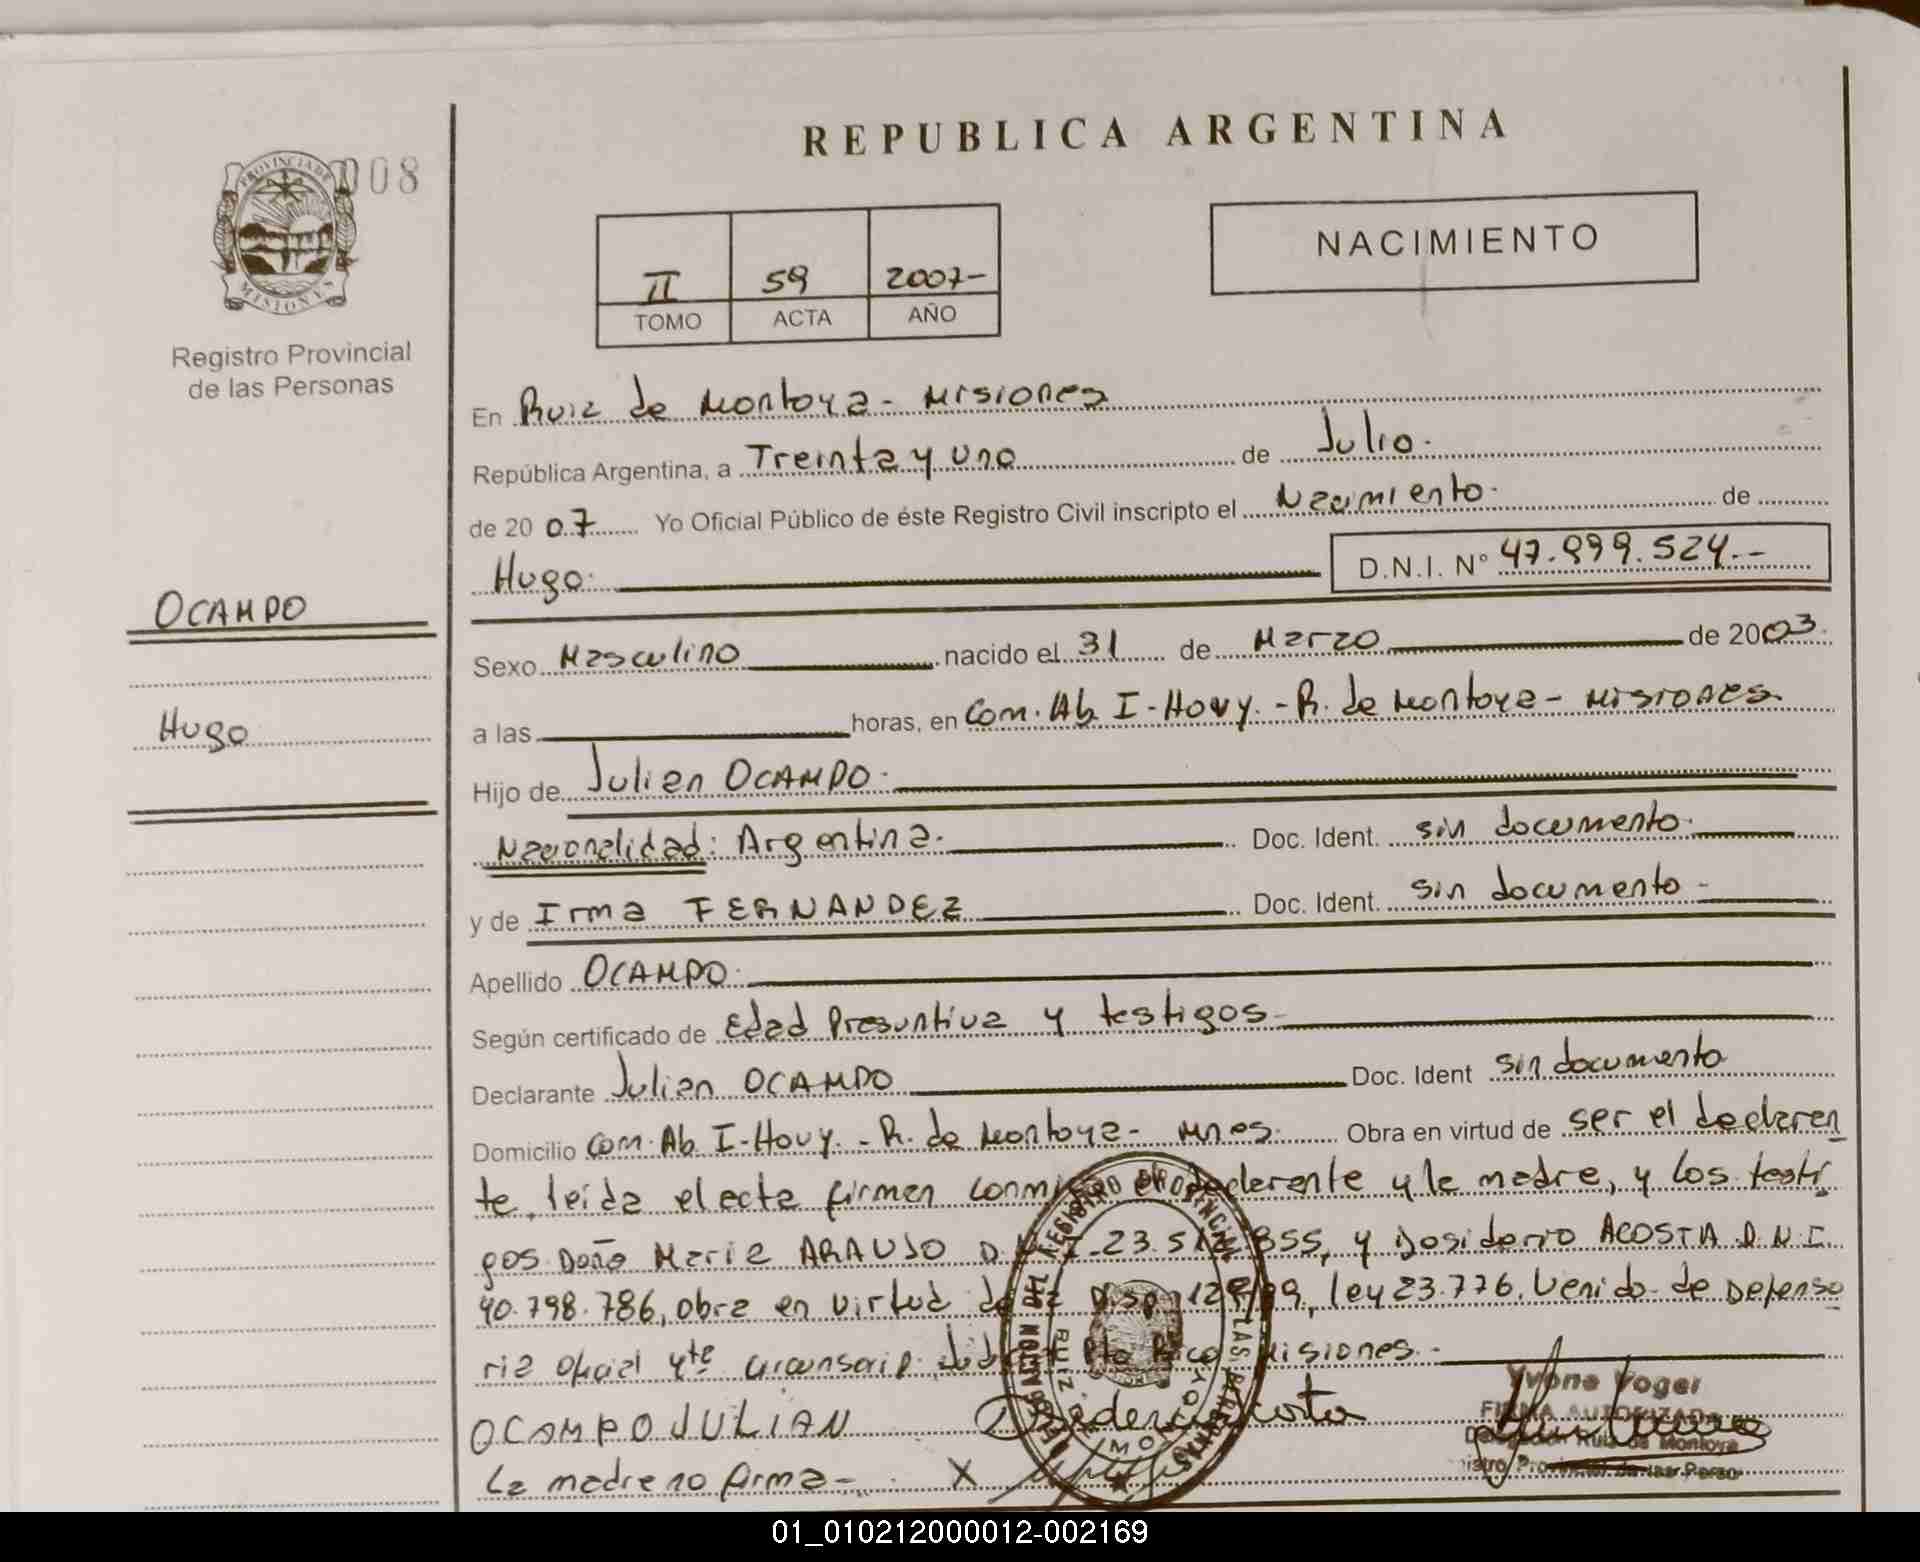 REPUBLICA ARGENTINA
008
PROVINCIA DE
MISIONES
NACIMIENTO
II 59 2007-
TOMO ACTA AÑO
Registro Provincial
de las Personas
En Ruiz de Montoya - Misiones
República Argentina, a Treinta y uno de Julio.
de 20 07 Yo Oficial Público de éste Registro Civil inscripto el Nacimiento. de
Hugo. D.N.I. N° 47.999.524.-
OCAMPO
Sexo Masculino nacido el 31 de Marzo de 2003.
Hugo
a las horas, en Com. Ab. I-Hovy. - R. de Montoya - Misiones
Hijo de Julian OCAMPO.
Nacionalidad: Argentina. Doc. Ident. sin documento.
y de Irma FERNANDEZ Doc. Ident. sin documento -
Apellido OCAMPO.
Según certificado de Edad Presuntiva y testigos-
Declarante Julian OCAMPO Doc. Ident sin documento
Domicilio Com. Ab. I-Hovy. - R. de Montoya - Mnes. Obra en virtud de ser el declaran
te, leida el acta firman conmigo el declarante y la madre, y los testi
gos Doña Maria ARAUJO 23.5 855, y Desiderio ACOSTA D.N.I.
40.798.786, obra en virtud de la Disp 129/99, ley 23.776. Venido de Defenso
ria Oficial 4te circunscrip. Jud Pto Rico Misiones.-
OCAMPO JULIAN
La madre no firma - X
Yvone Voger
FIRMA AUTORIZADA
Delegación Ruiz de Montoya
Registro Provincial de las Personas
DELEGACION DEL REGISTRO PROVINCIAL DE LAS PERSONAS
RUIZ DE MONTOYA
01_010212000012-002169